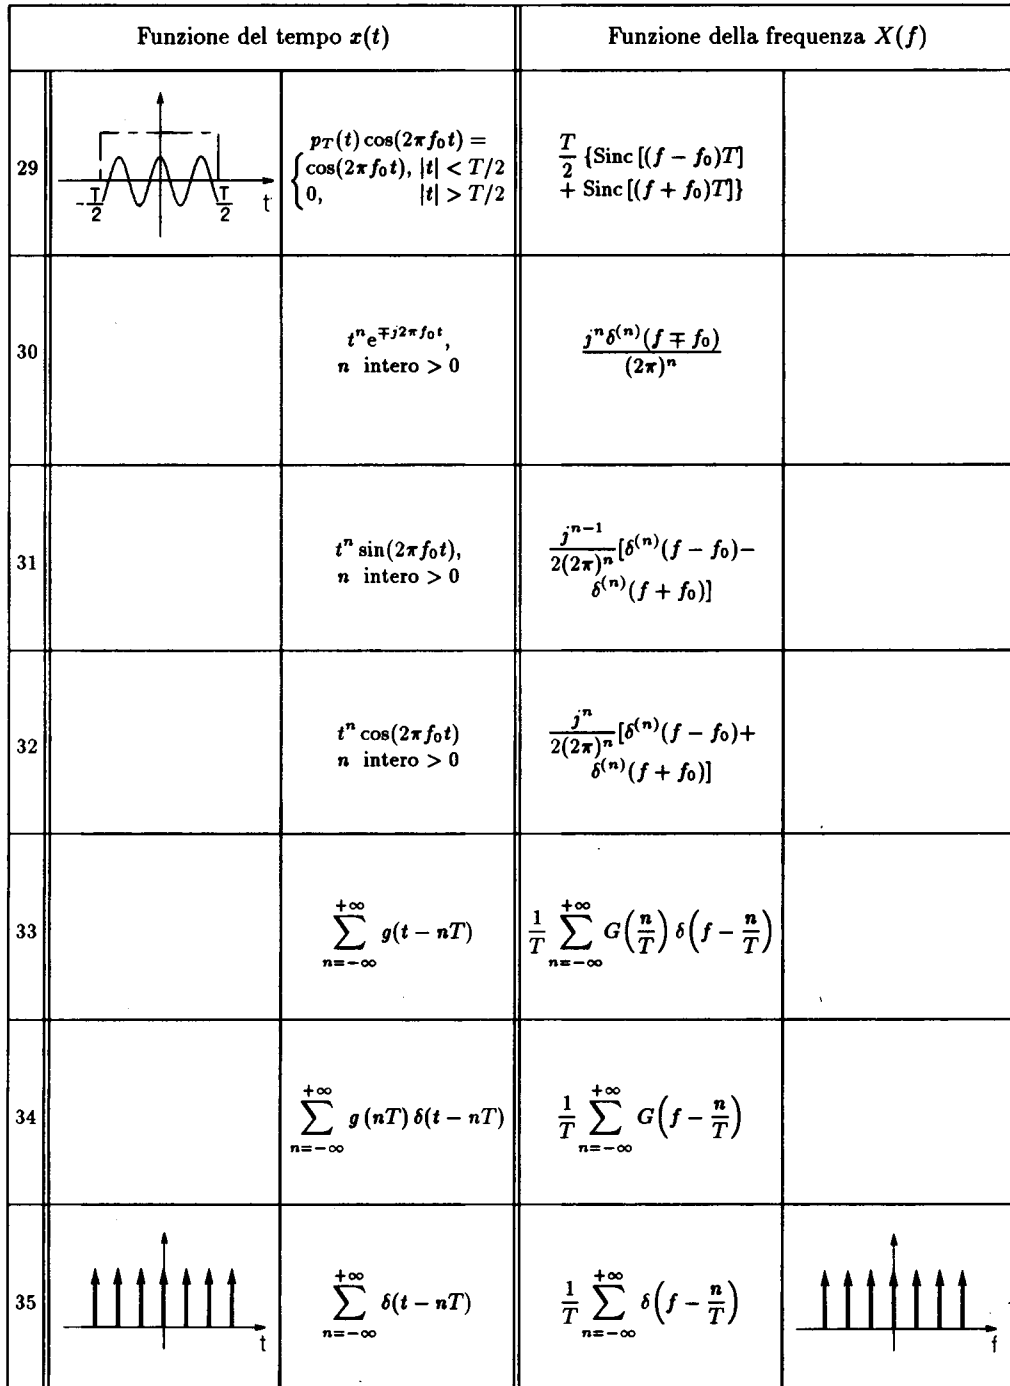 Funzione del tempo x(t)
Funzione della frequenza X(f)
29
-T/2
T/2
t
p_T(t) cos(2πf₀t) =
{ cos(2πf₀t), |t| < T/2
0, |t| > T/2
T/2 {Sinc [(f − f₀)T]
+ Sinc [(f + f₀)T]}
30
tⁿe^{∓j2πf₀t},
n intero > 0
jⁿδ⁽ⁿ⁾(f ∓ f₀)
(2π)ⁿ
31
tⁿ sin(2πf₀t),
n intero > 0
j^{n−1}/2(2π)ⁿ [δ⁽ⁿ⁾(f − f₀)−
δ⁽ⁿ⁾(f + f₀)]
32
tⁿ cos(2πf₀t)
n intero > 0
jⁿ/2(2π)ⁿ [δ⁽ⁿ⁾(f − f₀)+
δ⁽ⁿ⁾(f + f₀)]
33
∑_{n=−∞}^{+∞} g(t − nT)
1/T ∑_{n=−∞}^{+∞} G(n/T) δ(f − n/T)
34
∑_{n=−∞}^{+∞} g (nT) δ(t − nT)
1/T ∑_{n=−∞}^{+∞} G(f − n/T)
35
t
∑_{n=−∞}^{+∞} δ(t − nT)
1/T ∑_{n=−∞}^{+∞} δ(f − n/T)
f